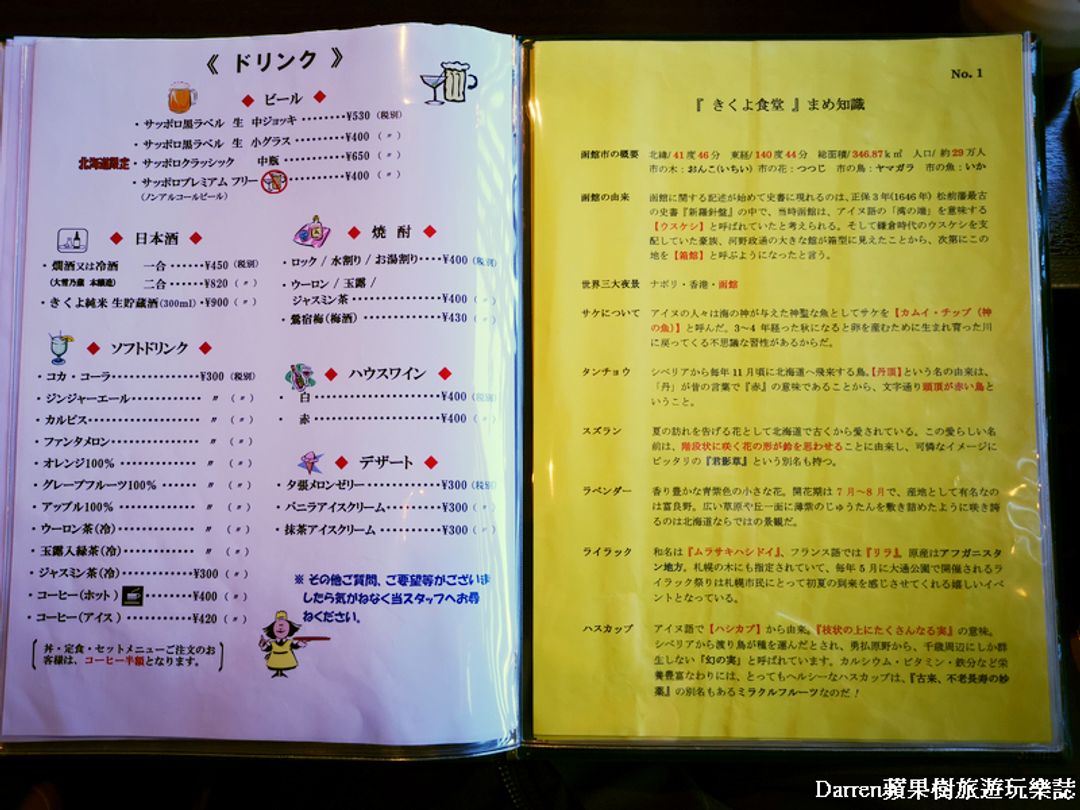 《 ドリンク 》
◆ ビール ◆
・サッポロ黒ラベル 生 中ジョッキ ・・・・・・・・¥530 (税別)
・サッポロ黒ラベル 生 小グラス ・・・・・・・・¥400 (〃)
北海道限定・サッポロクラッシック 中瓶 ・・・・・・・・¥650 (〃)
・サッポロプレミアム フリー ・・・・・・・・¥400 (〃)
(ノンアルコールビール)
◆ 日本酒 ◆
・燗酒又は冷酒 一合 ・・・・・・¥450 (税別)
(大雪乃蔵 本醸造) 二合 ・・・・・・¥820 (〃)
・きくよ純米 生貯蔵酒(300ml)・¥900 (〃)
◆ ソフトドリンク ◆
・コカ・コーラ・・・・・・・・・・・・¥300 (税別)
・ジンジャーエール・・・・・・・・・・ 〃 (〃)
・カルピス・・・・・・・・・・・・・・ 〃 (〃)
・ファンタメロン・・・・・・・・・・・ 〃 (〃)
・オレンジ100% ・・・・・・・・・・・ 〃 (〃)
・グレープフルーツ100% ・・・・・・ 〃 (〃)
・アップル100% ・・・・・・・・・・・ 〃 (〃)
・ウーロン茶(冷)・・・・・・・・・・・ 〃 (〃)
・玉露入緑茶(冷)・・・・・・・・・・・ 〃 (〃)
・ジャスミン茶(冷)・・・・・・・・・・¥300 (〃)
・コーヒー(ホット) ・・・・・・・・¥400 (〃)
・コーヒー(アイス) ・・・・・・・・¥420 (〃)
丼・定食・セットメニューご注文のお
客様は、コーヒー半額となります。
◆ 焼 酎 ◆
・ロック / 水割り / お湯割り・・・・¥400 (税別)
・ウーロン / 玉露 /
ジャスミン茶 ・・・・・・・・・・・・¥400 (〃)
・鶯宿梅(梅酒) ・・・・・・・・・・・¥430 (〃)
◆ ハウスワイン ◆
・ 白・・・・・・・・・・・・・・・・¥400 (税別)
・ 赤・・・・・・・・・・・・・・・・¥400 (〃)
◆ デザート ◆
・夕張メロンゼリー・・・・・・・・・・¥300 (税別)
・バニラアイスクリーム・・・・・・・・¥300 (〃)
・抹茶アイスクリーム・・・・・・・・・¥300 (〃)
※ その他ご質問、ご要望等がございま
したら気がねなく当スタッフへお尋
ねください。
No. 1
『 きくよ食堂 』まめ知識
函館市の概要 北緯/ 41 度 46 分 東経/ 140 度 44 分 総面積/ 346.87ｋ㎡ 人口/ 約 29 万人
市の木：おんこ(いちい) 市の花：つつじ 市の鳥：ヤマガラ 市の魚：いか
函館の由来 函館に関する記述が始めて史書に現れるのは、正保 3 年(1646 年) 松前藩最古
の史書『新羅針盤』の中で、当時函館は、アイヌ語の「湾の端」を意味する
【ウスケシ】と呼ばれていたと考えられる。そして鎌倉時代のウスケシを支
配していた豪族、河野政通の大きな館が箱型に見えたことから、次第にこの
地を【箱館】と呼ぶようになったと言う。
世界三大夜景 ナポリ・香港・函館
サケについて アイヌの人々は海の神が与えた神聖な魚としてサケを【カムイ・チップ（神
の魚)】と呼んだ。3～4 年経った秋になると卵を産むために生まれ育った川
に戻ってくる不思議な習性があるからだ。
タンチョウ シベリアから毎年 11 月頃に北海道へ飛来する鳥。【丹頂】という名の由来は、
「丹」が昔の言葉で『赤』の意味であることから、文字通り頭頂が赤い鳥と
いうこと。
スズラン 夏の訪れを告げる花として北海道で古くから愛されている。この愛らしい名
前は、階段状に咲く花の形が鈴を思わせることに由来し、可憐なイメージに
ピッタリの『君影草』という別名も持つ。
ラベンダー 香り豊かな青紫色の小さな花。開花期は 7 月～8 月で、産地として有名なの
は富良野。広い草原や丘一面に薄紫のじゅうたんを敷き詰めたように咲き誇
るのは北海道ならではの景観だ。
ライラック 和名は『ムラサキハシドイ』、フランス語では『リラ』。原産はアフガニスタ
ン地方。札幌の木にも指定されていて、毎年 5 月に大通公園で開催されるラ
イラック祭りは札幌市民にとって初夏の到来を感じさせてくれる嬉しいイベ
ントとなっている。
ハスカップ アイヌ語で【ハシカプ】から由来。『枝状の上にたくさんなる実』の意味。
シベリアから渡り鳥が種を運んだとされ、勇払原野から、千歳周辺にしか群
生しない「幻の実」と呼ばれています。カルシウム・ビタミン・鉄分など栄
養豊富なわりには、とってもヘルシーなハスカップは、『古来、不老長寿の妙
薬』の別名もあるミラクルフルーツなのだ！
Darren蘋果樹旅遊玩樂誌